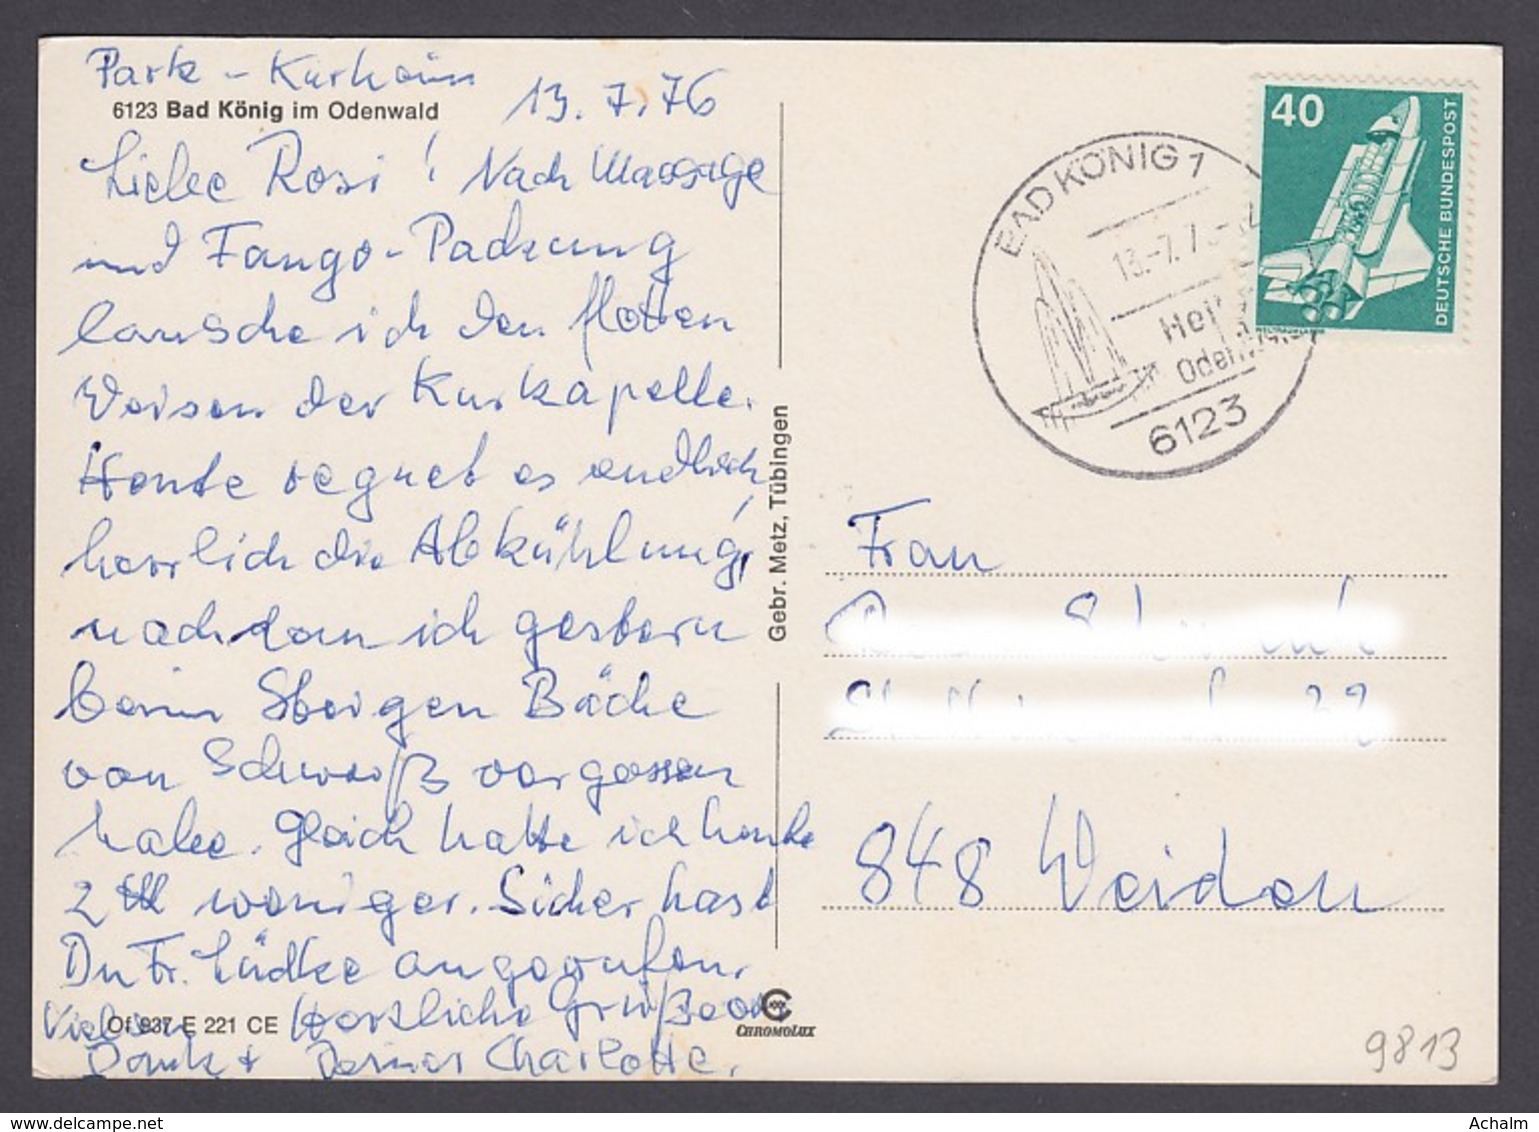 Park - Kurhaus
6123 Bad König im Odenwald
13.7.76
Liebe Rosi! Nach Massage
und Fango-Packung
lausche ich den flotten
Weisen der Kurkapelle.
Heute regnet es endlich,
herrlich die Abkühlung,
nachdem ich gestern
beim Steigen Bäche
von Schweiß vergossen
habe. Gleich hatte ich heute
2 weniger. Sicher hast
Du Fr. Lüdke angerufen.
Vielen Herzliche Grüße
Dank + Deiner Charlotte.
Of 937 E 221 CE
CHROMOLUX
Gebr. Metz, Tübingen
BAD KÖNIG 1
13.-7.7
6123
40
DEUTSCHE BUNDESPOST
Frau
848 Weiden
9813
Achalm